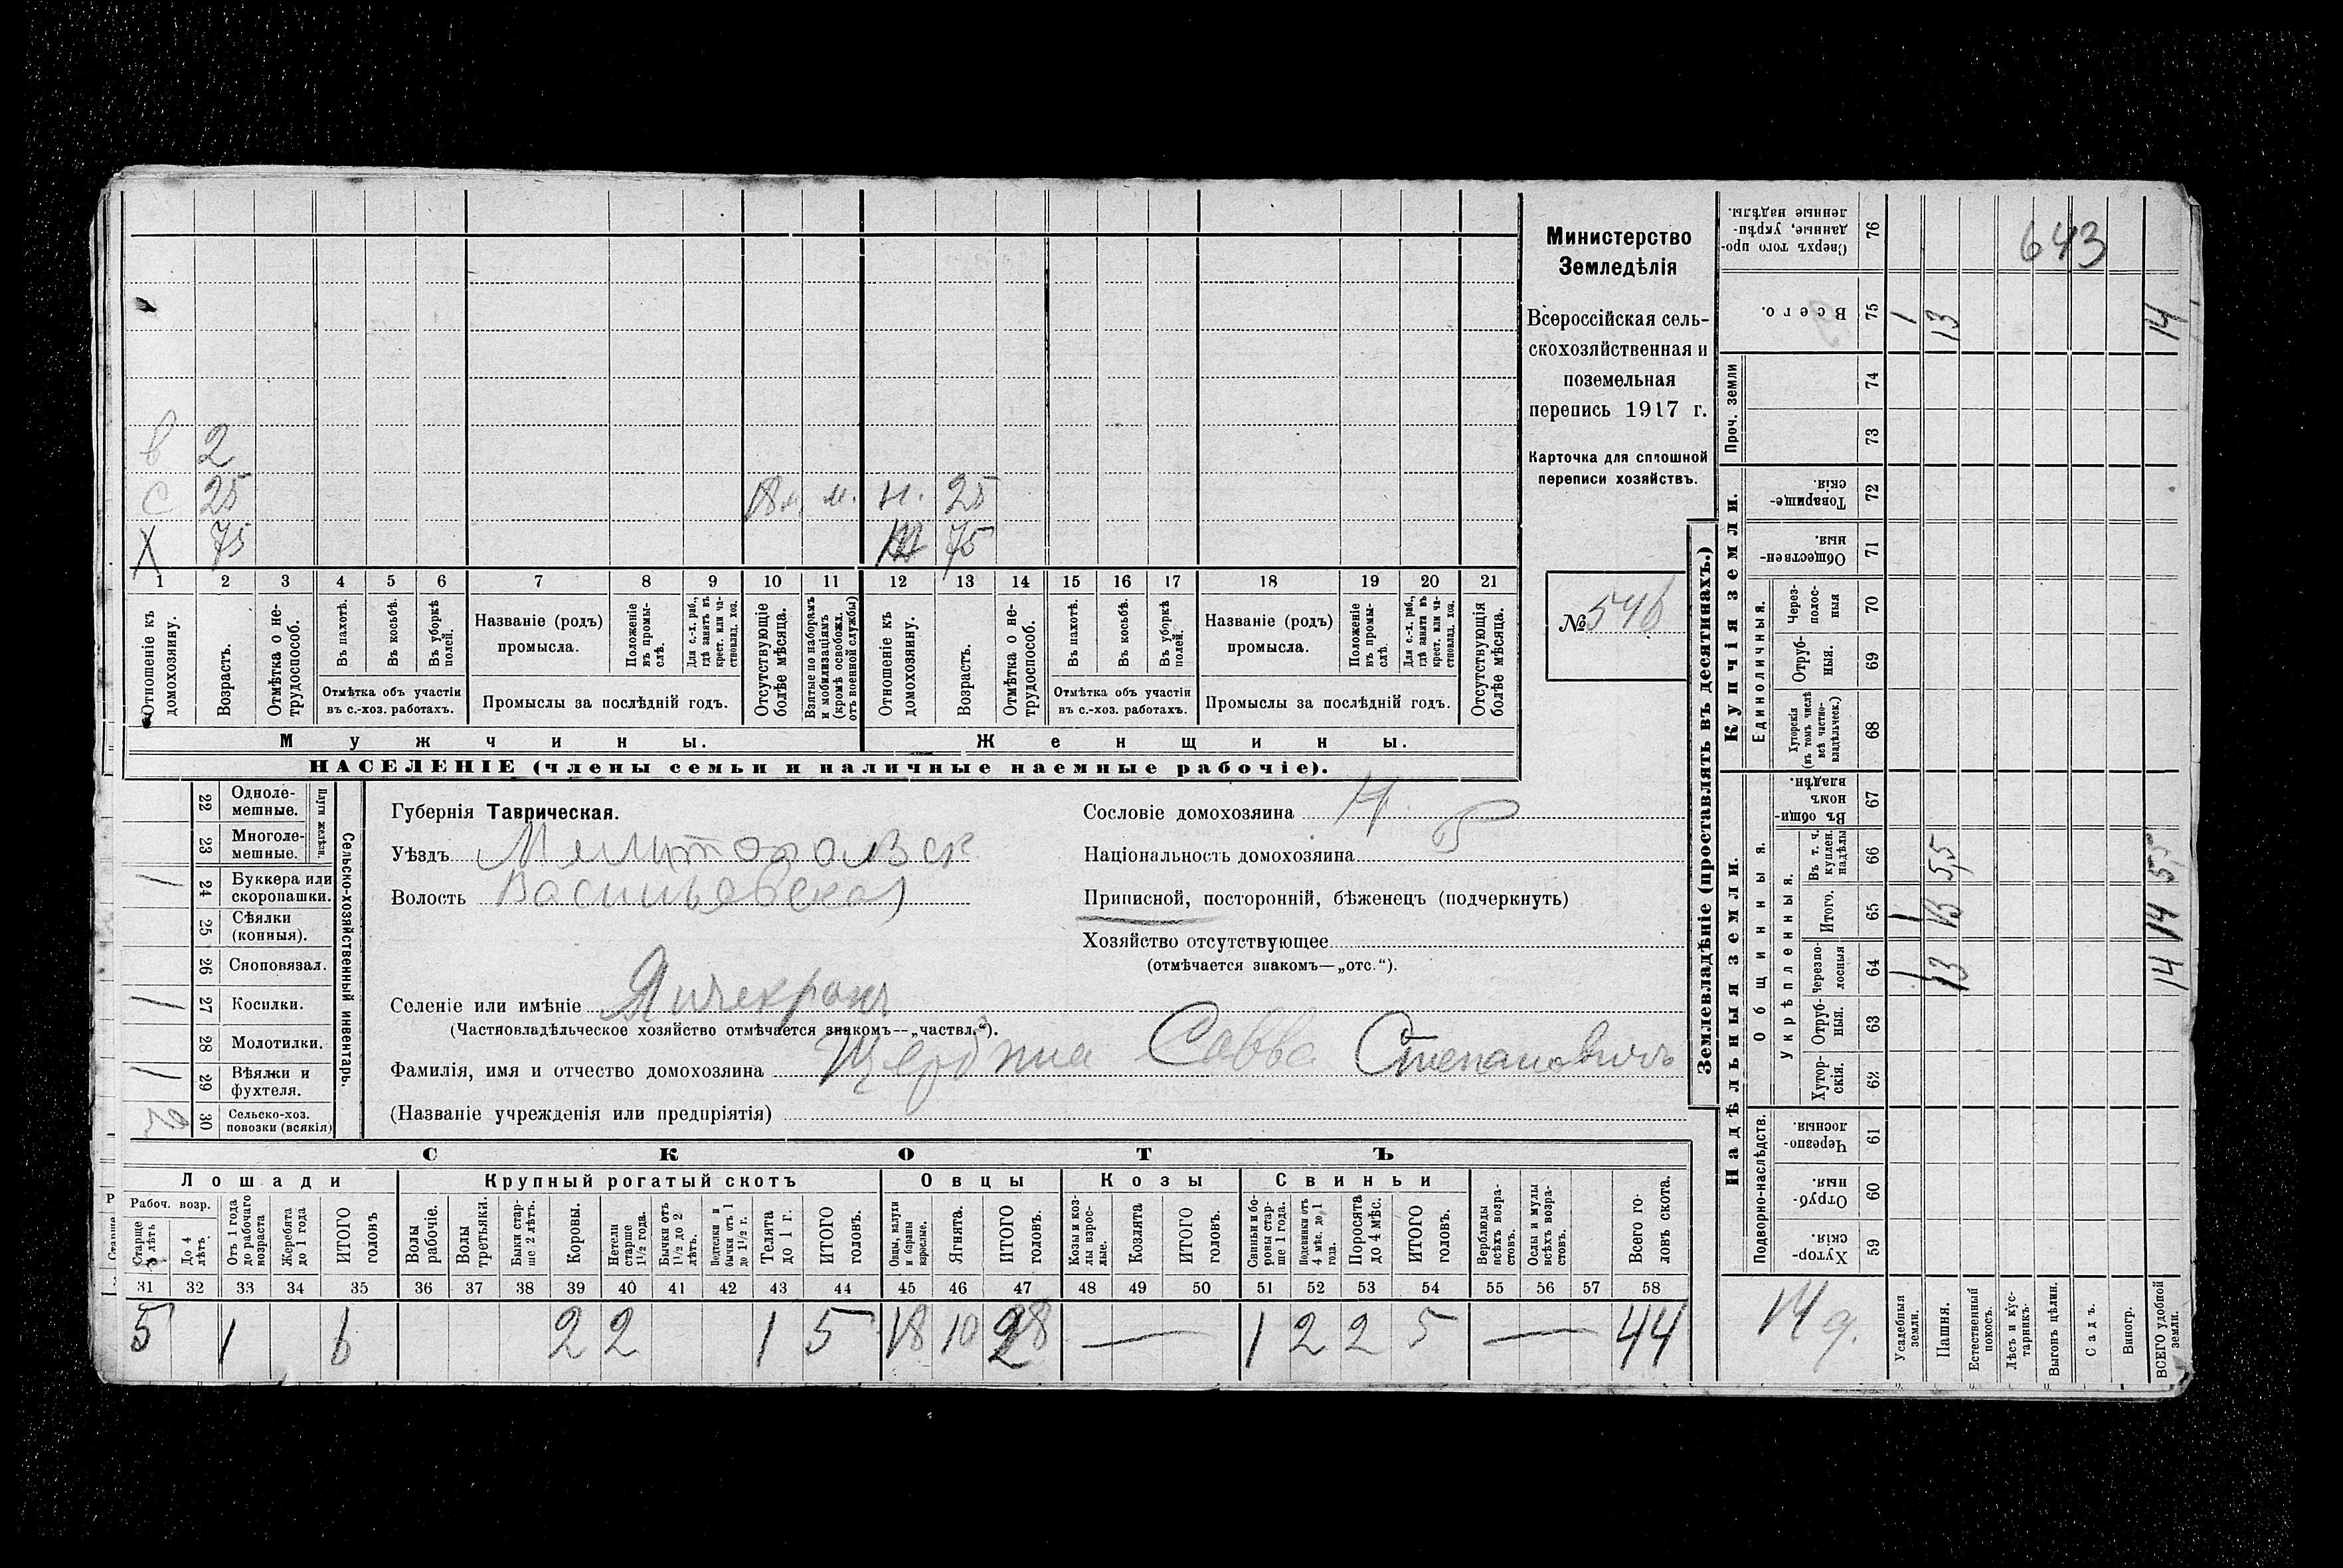 Министерство
Земледѣлія
Всероссійская сель-
скохозяйственная и
поземельная
перепись 1917 г.
Карточка для сплошной
переписи хозяйствъ.
№ 546
643
в 2
с 25 18 м. м. н. 25
Х 75 75
1 2 3 4 5 6 7 8 9 10 11 12 13 14 15 16 17 18 19 20 21
Отношеніе къ домохозяину.
Возрастъ.
Отмѣтка о не-трудоспособ.
Въ пахотѣ.
Въ косьбѣ.
Въ уборкѣ полей.
Отмѣтка объ участіи
въ с.-хоз. работахъ.
Названіе (родъ)
промысла.
Положеніе въ промы-слѣ.
Для с.-х. раб., гдѣ занятъ въ крест. или ча-стновлад. хоз.
Промыслы за послѣдній годъ.
Отсутствующіе болѣе мѣсяца.
Взятые по наборамъ и мобилизаціямъ (кромѣ освобожд. отъ военной службы)
Отношеніе къ домохозяину.
Возрастъ.
Отмѣтка о не-трудоспособ.
Въ пахотѣ.
Въ косьбѣ.
Въ уборкѣ полей.
Отмѣтка объ участіи
въ с.-хоз. работахъ.
Названіе (родъ)
промысла.
Положеніе въ промы-слѣ.
Для с.-х. раб., гдѣ занята въ крест. или ча-стновлад. хоз.
Промыслы за послѣдній годъ.
Отсутствующія болѣе мѣсяца.
Мужчины. Женщины.
НАСЕЛЕНІЕ (члены семьи и наличные наемные рабочіе).
Сельско-хозяйственный инвентарь.
Плуги желѣзн.
22 Одноле-мешные.
23 Многоле-мешные.
1 24 Буккера или скоропашки.
25 Сѣялки (конныя).
26 Сноповязал.
1 27 Косилки.
28 Молотилки.
1 29 Вѣялки и фухтеля.
2 30 Сельско-хоз. повозки (всякія)
Губернія Таврическая.
Уѣздъ Мелитопольск
Волость Васильевская
Селеніе или имѣніе Янчекракъ
(Частновладѣльческое хозяйство отмѣчается знакомъ—„частвл.“).
Фамилія, имя и отчество домохозяина Щербина Савва Степановичъ
(Названіе учрежденія или предпріятія)
Сословіе домохозяина
Національность домохозяина
Приписной, посторонній, бѣженецъ (подчеркнуть)
Хозяйство отсутствующее
(отмѣчается знакомъ—„отс.“).
СКОТЪ
Лошади Крупный рогатый скотъ Овцы Козы Свиньи
Рабоч. возр.
Старше 4 лѣтъ
До 4 лѣтъ.
Отъ 1 года до рабочаго возраста
Жеребята до 1 года
ИТОГО головъ
Волы рабочіе.
Волы третьяки.
Быки стар-ше 2 лѣтъ.
Коровы.
Нетели старше 1½ года.
Бычки отъ 1½ до 2 лѣтъ.
Подтелки и бычки отъ 1 до 1½ г.
Телята до 1 г.
ИТОГО головъ.
Овцы, валухи и бараны взрослые.
Ягнята.
ИТОГО головъ.
Козы и коз-лы взрос-лые.
Козлята
ИТОГО головъ.
Свиньи и бо-ровы стар-ше 1 года.
Подсвинки отъ 4 мѣс. до 1 года.
Поросята до 4 мѣс.
ИТОГО головъ.
Верблюды всѣхъ возра-стовъ.
Ослы и мулы всѣхъ возра-стовъ.
Всего го-ловъ скота.
31 32 33 34 35 36 37 38 39 40 41 42 43 44 45 46 47 48 49 50 51 52 53 54 55 56 57 58
5 1 6 2 2 1 5 18 10 28 — 1 2 2 5 — 44
Землевладѣніе (проставлять въ десятинахъ.)
Купчія земли.
Надѣльныя земли.
Сверхъ того про-данные, укрѣп-ленные надѣлы. 76
Всего. 75 1 13 14
Проч. земли 74
73
Товарище-скія. 72
Обществен-ныя. 71
Единоличныя.
Через-полос-ныя 70
Отруб-ныя. 69
Хуторскія (въ томъ числѣ всѣ частно-владѣльческ.) 68
Общинныя.
Въ общин-номъ владѣн. 67
Укрѣпленныя.
Въ т. ч. куплен. надѣлы 66 5,5 5,5
Итого. 65 1 13 14
Черезпо-лосныя 64 1 13 14
Отруб-ныя. 63
Хутор-скія. 62
Подворно-наслѣдств.
Черезпо-лосныя. 61
Отруб-ныя. 60
Хутор-скія. 59
14 д.
Усадебныя земли.
Пашня.
Естественный покосъ.
Лѣсъ и кус-тарникъ.
Выгонъ цѣлин.
Садъ.
Виногр.
ВСЕГО удобной земли.